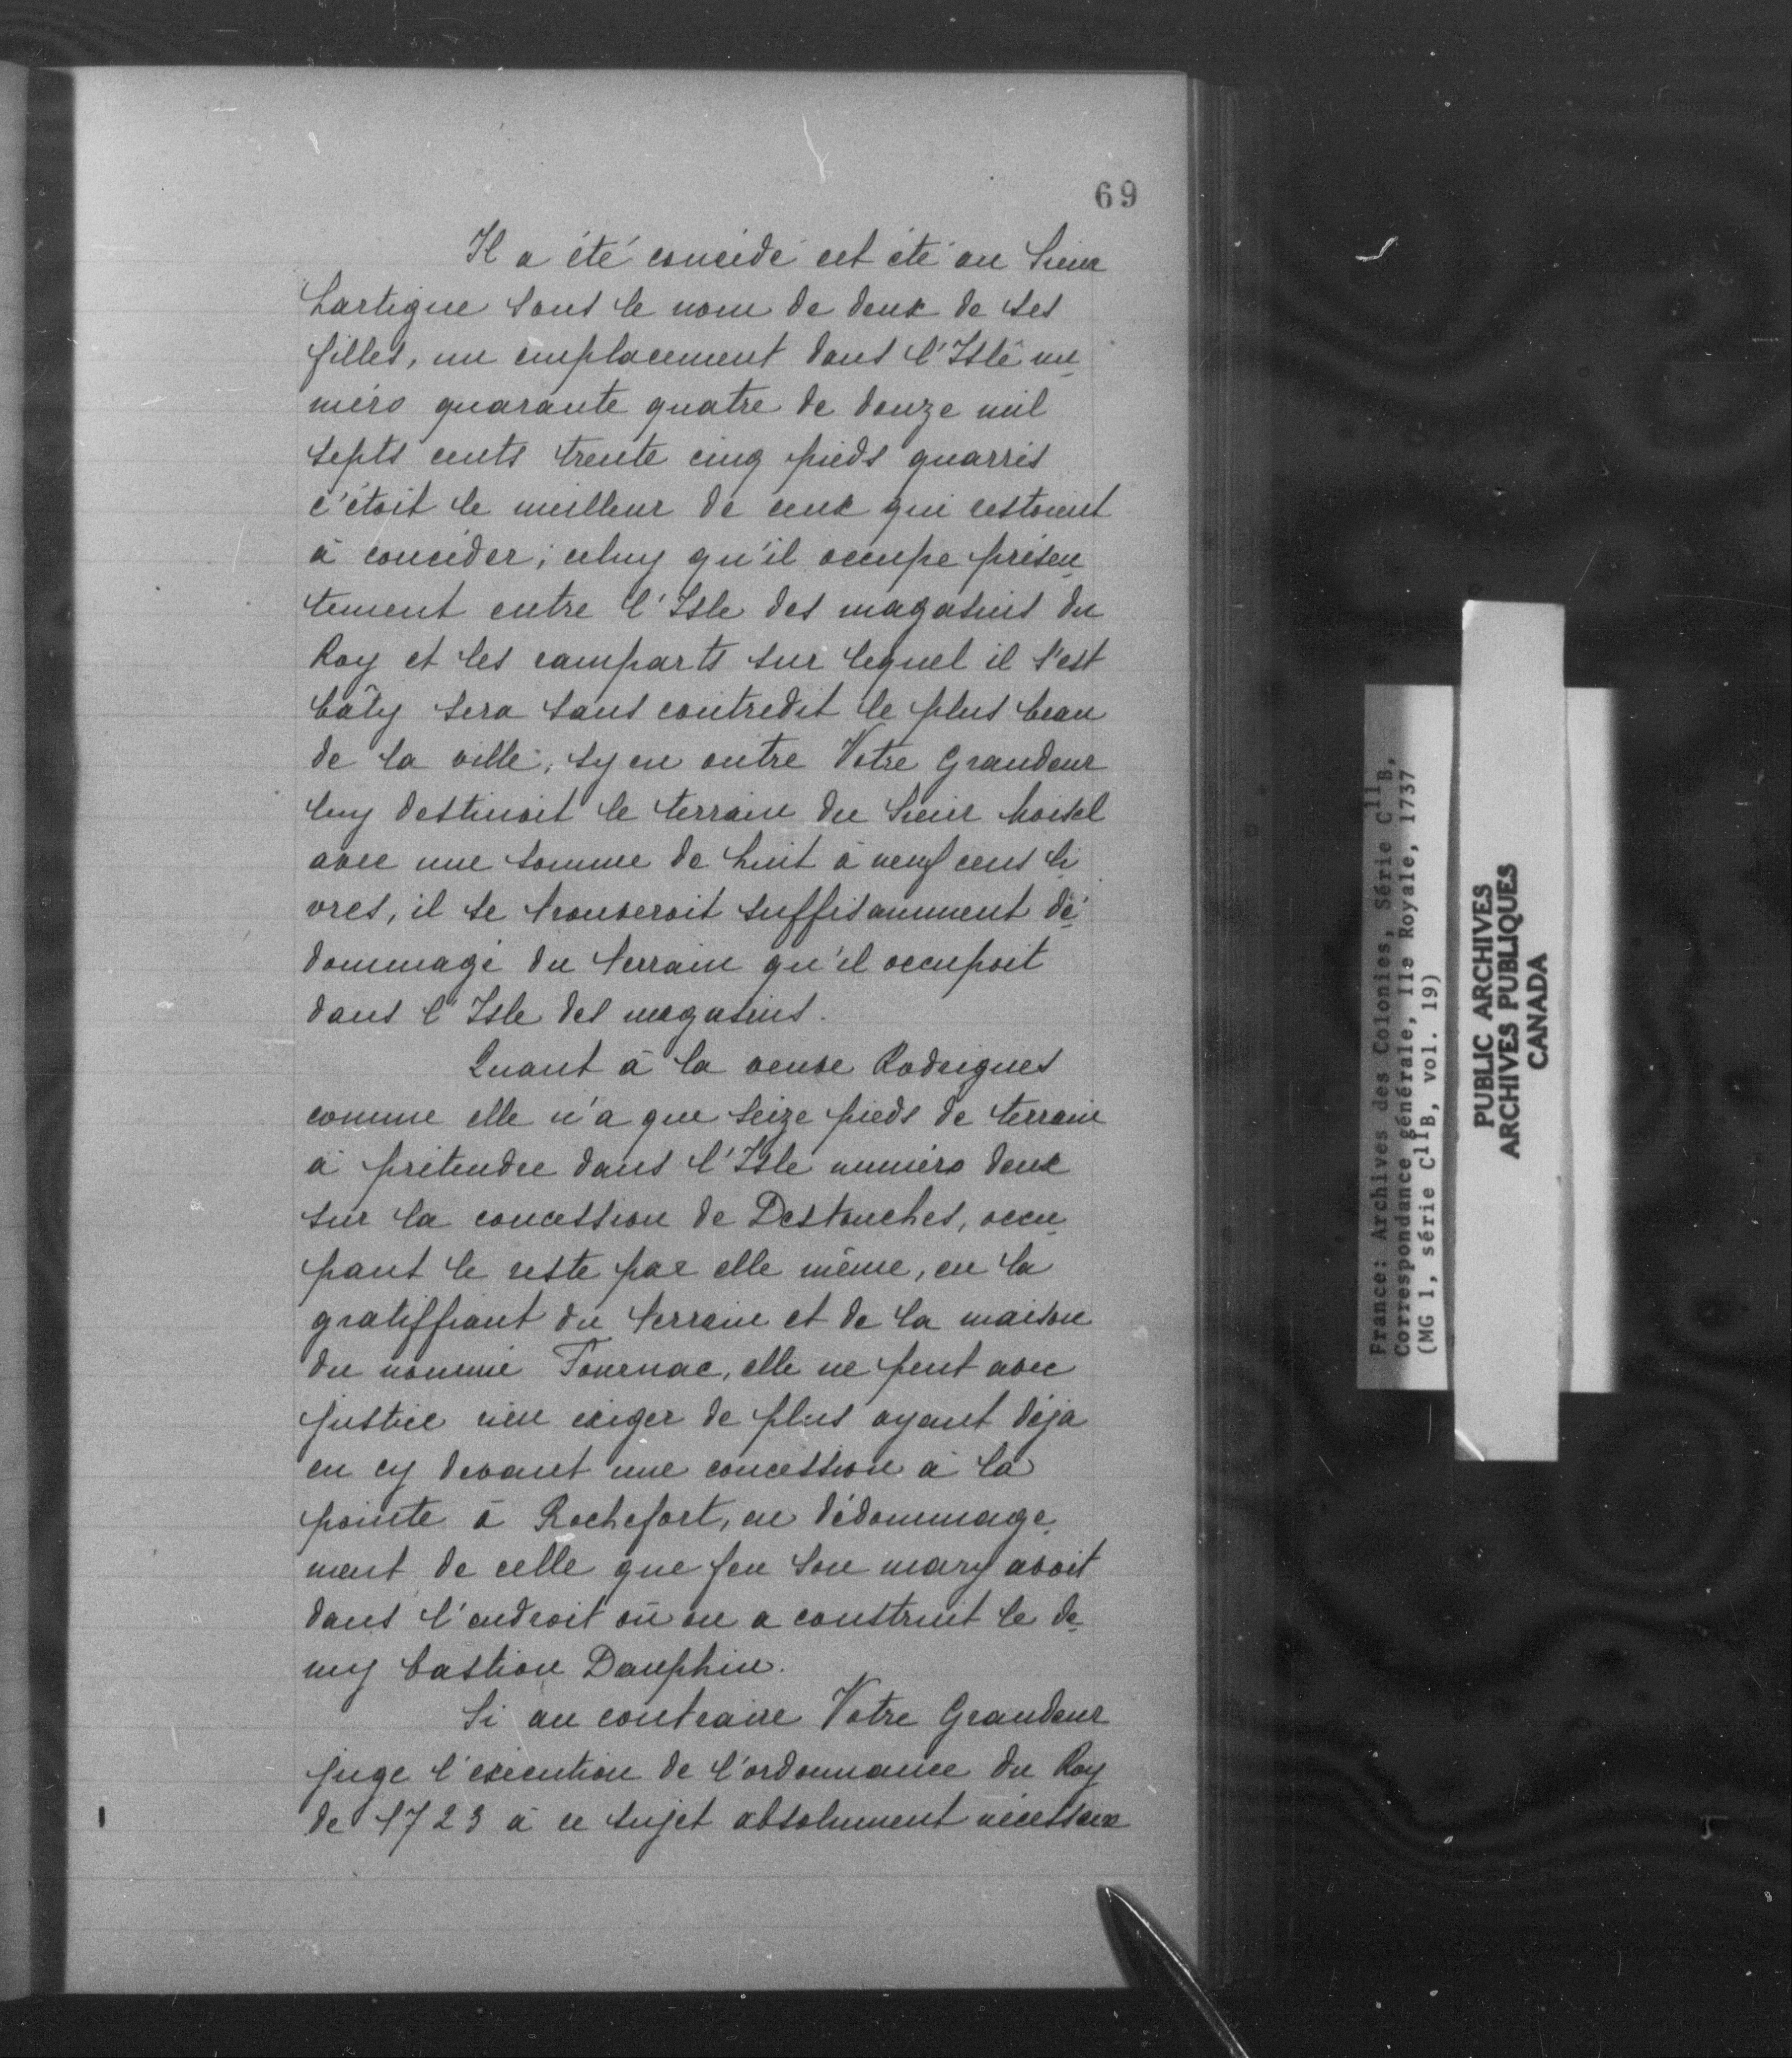 69
Il a été concédé cet été au Sieur
Lartigue sous le nom de deux de ses
filles, un emplacement dans l'Isle nu
méro quarante quatre de douze mil
septs cents trente cinq pieds quarrés
c'étoit le meilleur de ceux qui restoient
à concéder; celuy qu'il occupe présen
tement entre l'Isle des magasins du
Roy et les ramparts sur lequel il s'est
bâty sera sans contredit le plus beau
de la ville; sy en outre Votre Grandeur
luy destinoit le terrain du Sieur Moisel
avec une somme de huit à neuf cens li
vres, il se trouveroit suffisamment dé
dommagé du terrain qu'il occupoit
dans l'Isle des magasins.
Quant à la veuve Rodrigues
comme elle n'a que seize pieds de terrain
à prétendre dans l'Isle numéro deux
sur la concession de Destouches, occu
pant le reste par elle même, en la
gratiffiant du terrain et de la maison
du nommé Fournac, elle ne peut avec
justice rien exiger de plus ayant déja
eu cy devant une concession à la
pointe à Rochefort, en dédommage
ment de celle que feu son mary avoit
dans l'endroit où on a construit le de
my bastion Dauphin.
Si au contraire Votre Grandeur
juge l'exécution de l'ordonnance du Roy
de 1723 à ce sujet absolument nécessaire
France: Archives des Colonies, Série C11B,
Correspondance générale, Ile Royale, 1737
(MG 1, série C11B, vol. 19)
PUBLIC ARCHIVES
ARCHIVES PUBLIQUES
CANADA